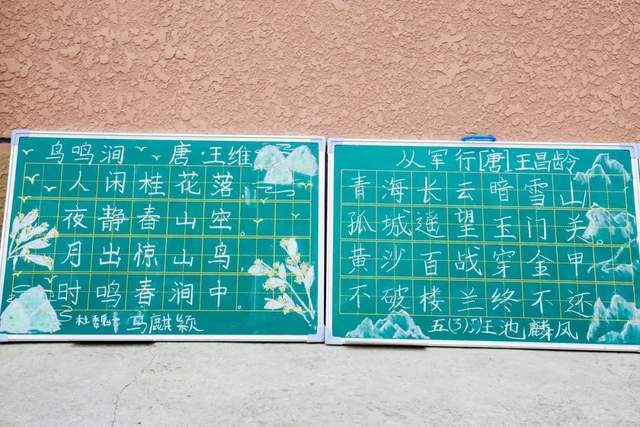 鸟鸣涧 唐·王维
人闲桂花落，
夜静春山空。
月出惊山鸟，
时鸣春涧中
马麒颖
从军行[唐]王昌龄
青海长云暗雪山，
孤城遥望玉门关。
黄沙百战穿金甲，
不破楼兰终不还
五(3):汪池麟风